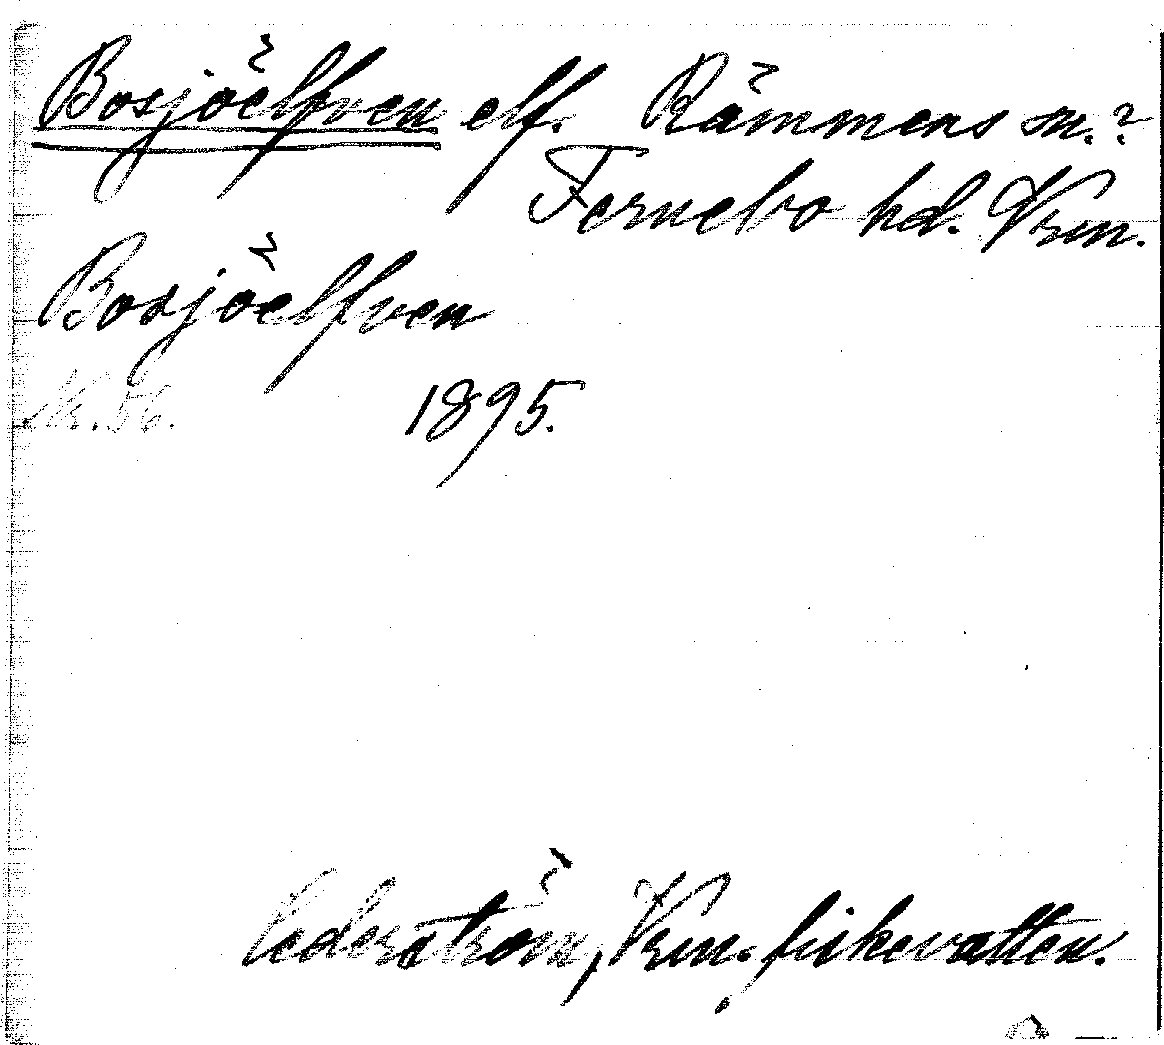 Bosjöelfven elf. Rämmens sn.?
Fernebo hd. Vrm.
Bosjöelfven
s. 56. 1895.
Cederström, Vrm. fiskevatten.